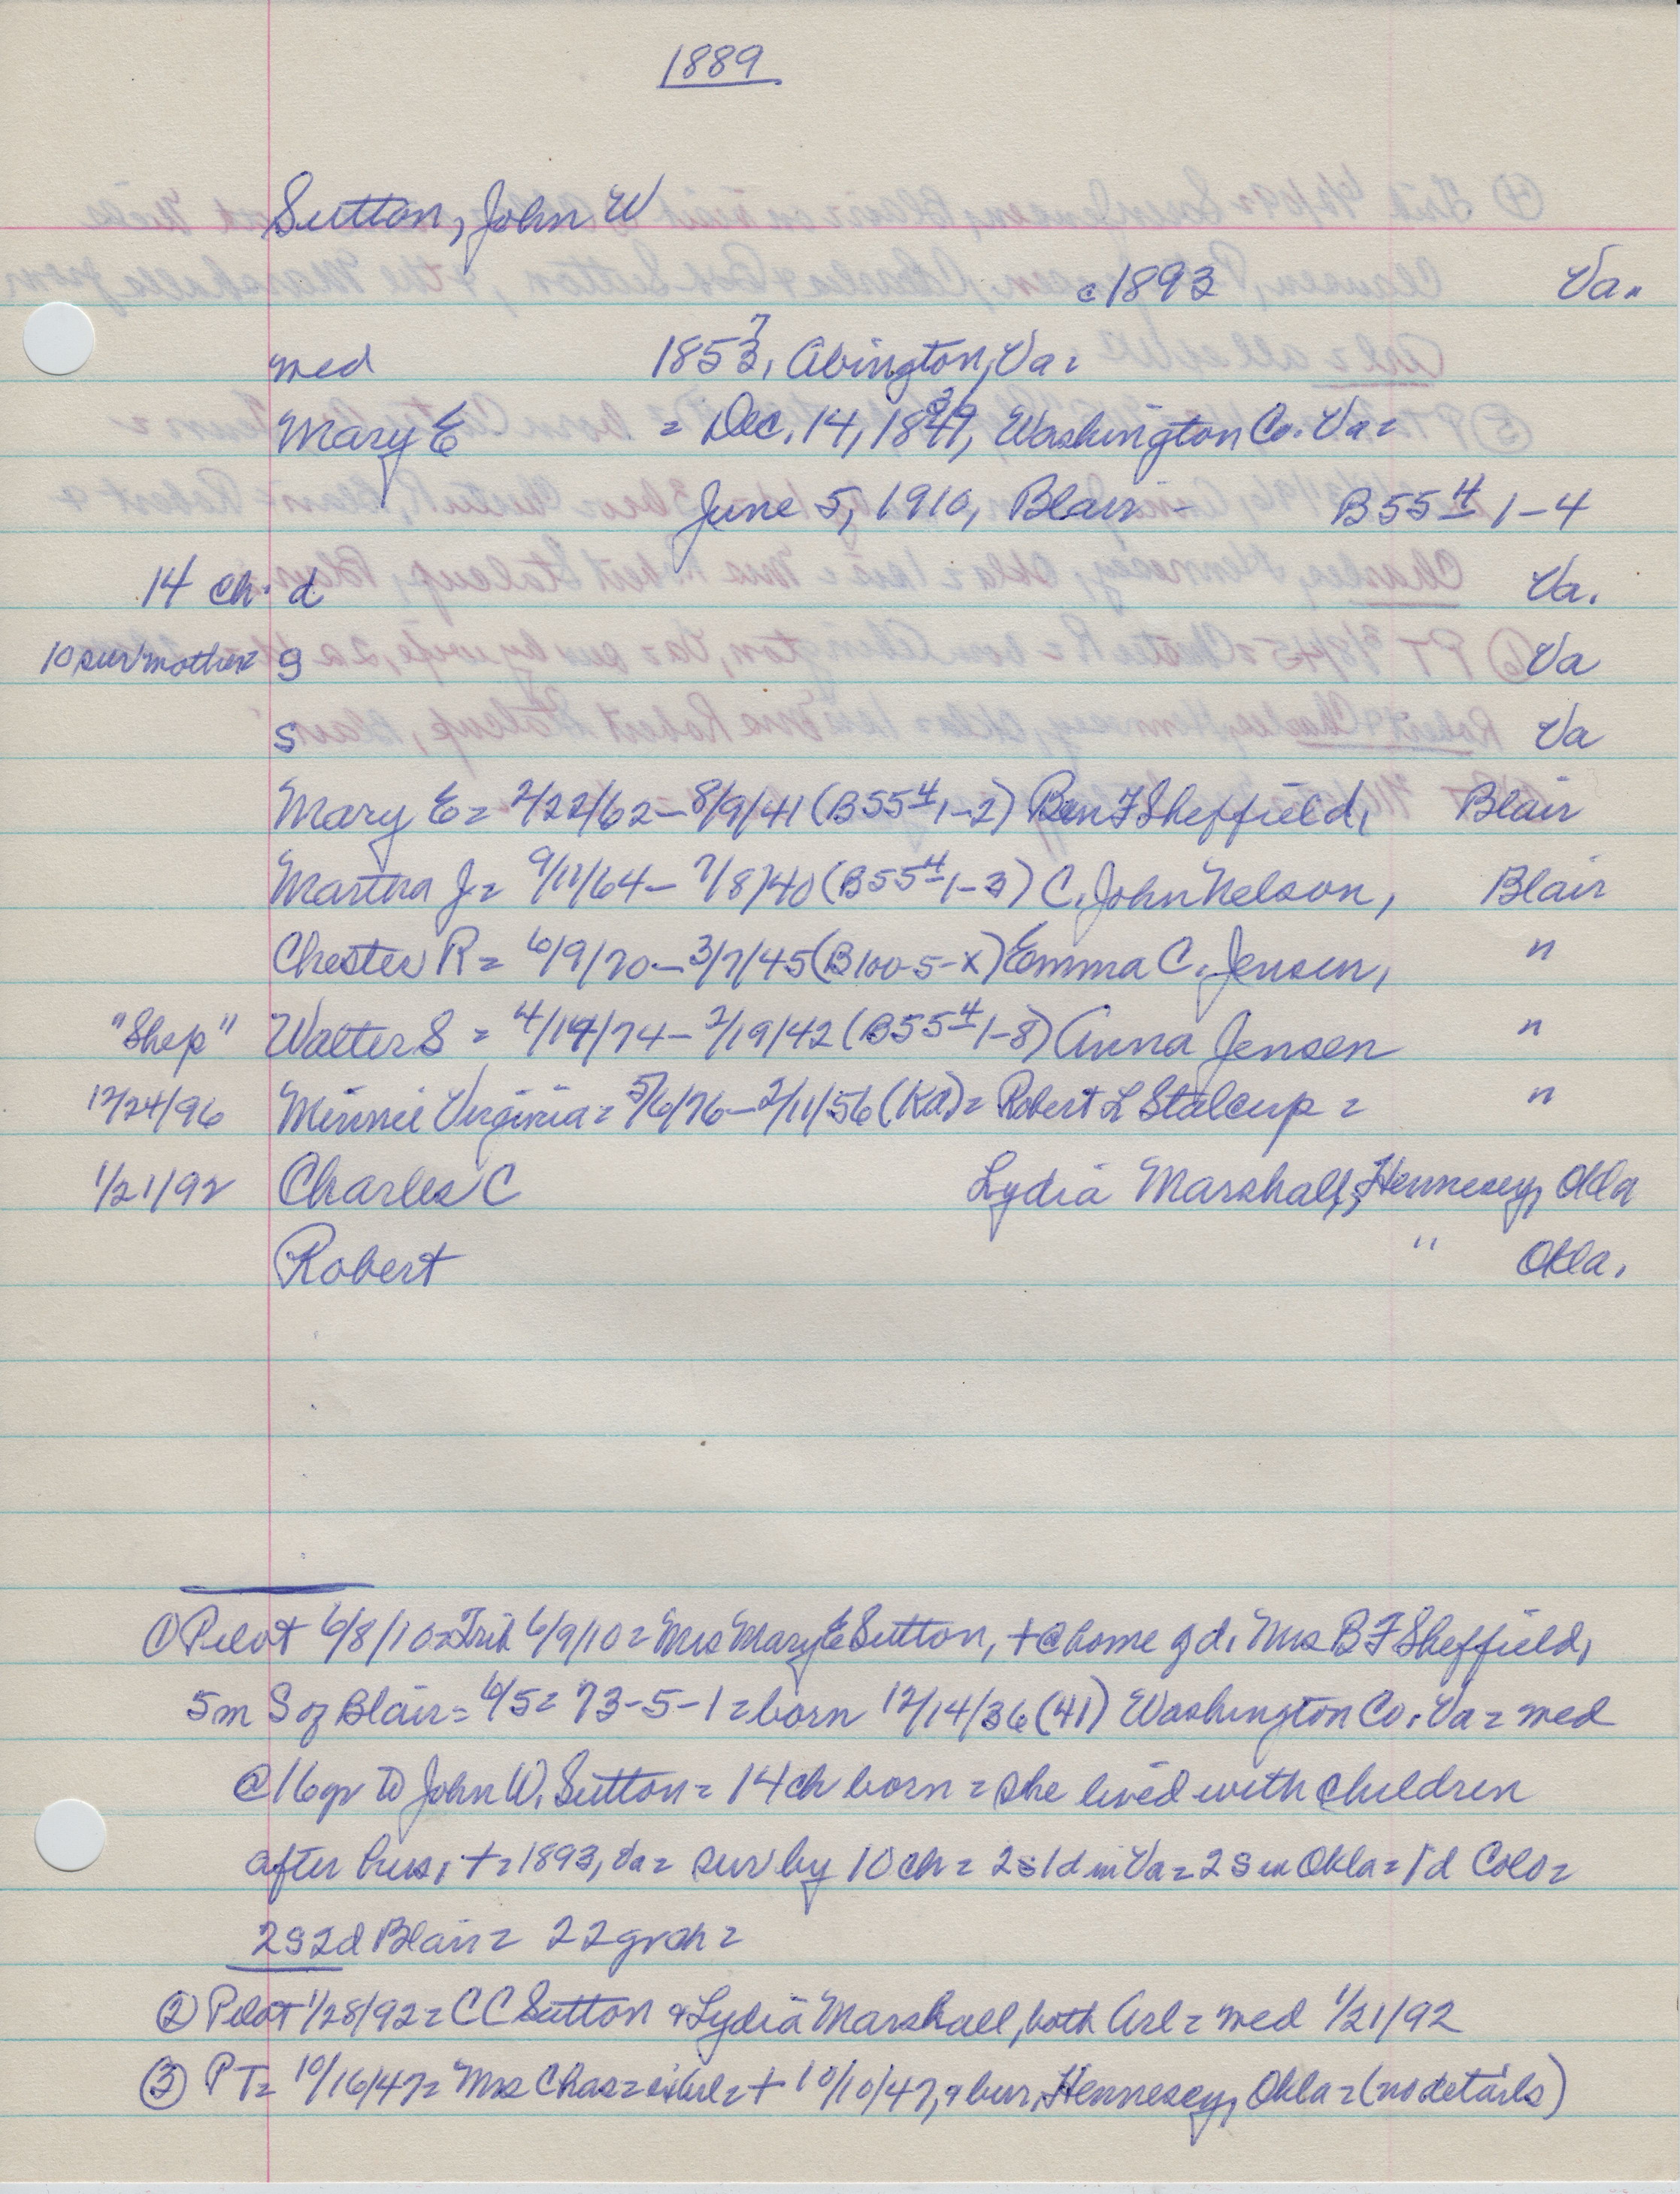 1889
Sutton, John W
c 1893 Va.
med 1853, 7 Abington, Va =
Mary E = Dec. 14, 18 Washington Co. Va =
June 5, 1910, Blair - B 55 4 1-4
14 ch. d Va.
10 sur mother = g Va
s Va
Mary E = 2/22/62 - 8/9/41 (B 55 4 1-2) Ben F Sheffield, Blair
Martha J = 9/11/64 - 7/8/40 (B 55 4 1-3) C. John Nelson, Blair
Chester R = 6/9/70 - 3/7/45 (B 100-5-X) Emma C. Jensen, "
"Shep" Walter S = 4/14/74 - 2/19/42 (B 55 4 1-8) Anna Jensen "
12/24/96 Minnie Virginia = 5/6/76 - 2/11/56 (Ka) = Robert L Stalcup = "
1/21/92 Charles C Lydia Marshall, Hennesey, Okla
Robert " Okla.
① Pilot 6/8/10 = Trib 6/9/10 = Mrs Mary E Sutton, + @ home of d. Mrs B F Sheffield,
5 m S of Blair = 6/5 = 73-5-1 = born 12/14/36 (41) Washington Co. Va = med
@ 16 yr to John W. Sutton = 14 ch born = she lived with children
after hus. + = 1893, Va = sur by 10 ch = 2 s 1 d in Va = 2 s in Okla = 1 d Colo =
2 s 2 d Blair = 22 grch =
② Pilot 1/28/92 = C C Sutton & Lydia Marshall, both Arl = med 1/21/92
③ PT = 10/16/47 = Mrs Chas = ex Arl = + 10/10/47, & bur. Hennesey, Okla = (no details)